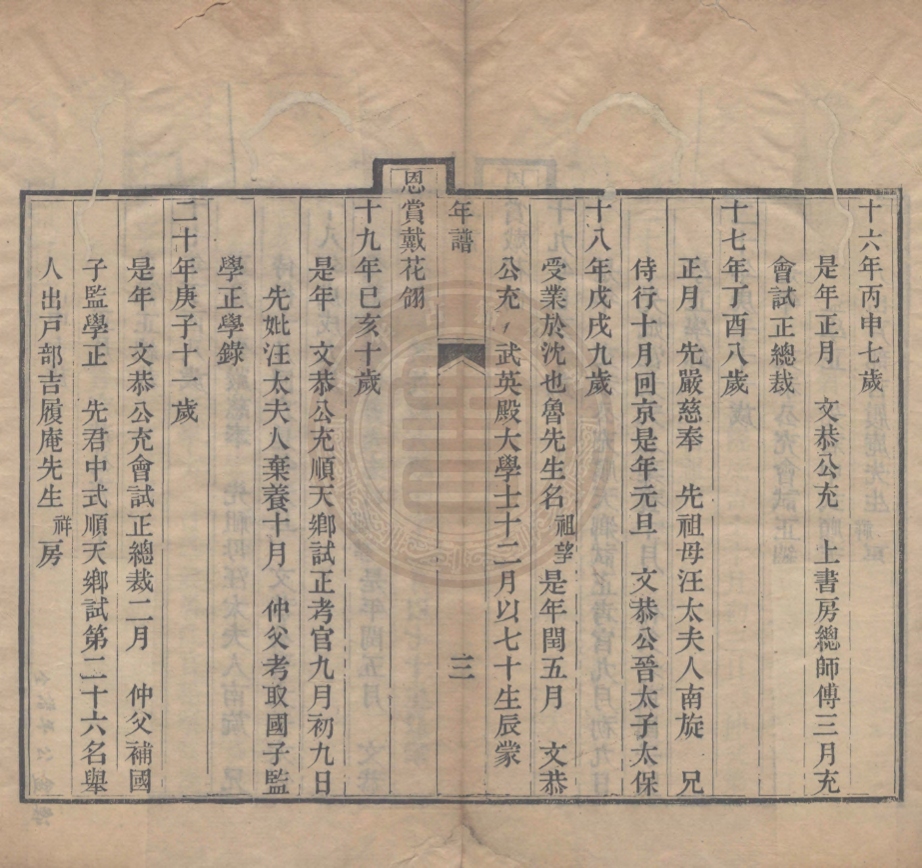 十六年丙申七歲
是年正月　文恭公充　上書房總師傅三月充
會試正總裁
十七年丁酉八歲
正月　先嚴慈奉　先祖母汪太夫人南旋　兄
侍行十月回京是年元旦　文恭公晉太子太保
十八年戊戌九歲
受業於沈也魯先生名祖望是年閏五月　文恭
公充　武英殿大學士十二月以七十生辰蒙
年譜　三
恩賞戴花翎
十九年己亥十歲
是年　文恭公充順天鄉試正考官九月初九日
先妣汪太夫人棄養十月　仲父考取國子監
學正學錄
二十年庚子十一歲
是年　文恭公充會試正總裁二月　仲父補國
子監學正　先君中式順天鄉試第二十六名舉
人出戸部吉履庵先生祥房